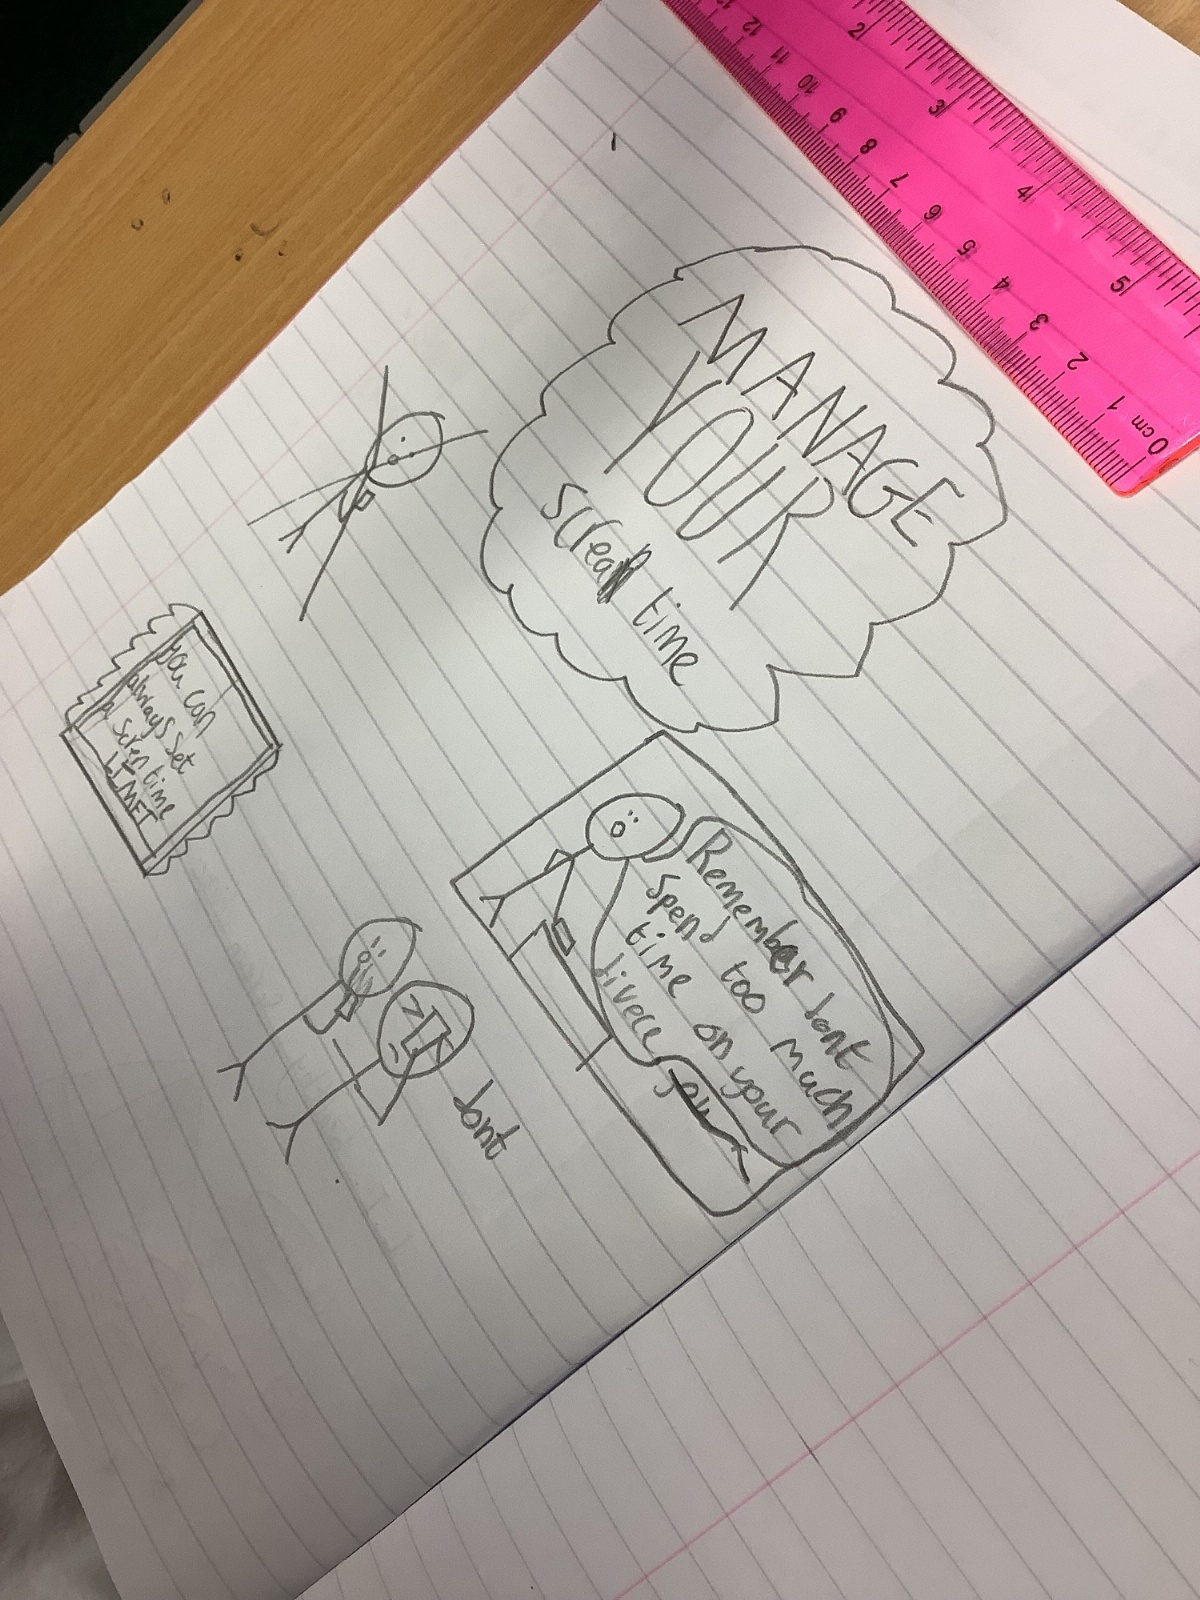 MANAGE
YOUR
screan time
Remember dont
spend too much
time on your
divece
you can
always set
a scren time
LIMET
dont
13 12 11 10 9 8 7 6 5 4 3 2 1 0 cm
2 3 4 5